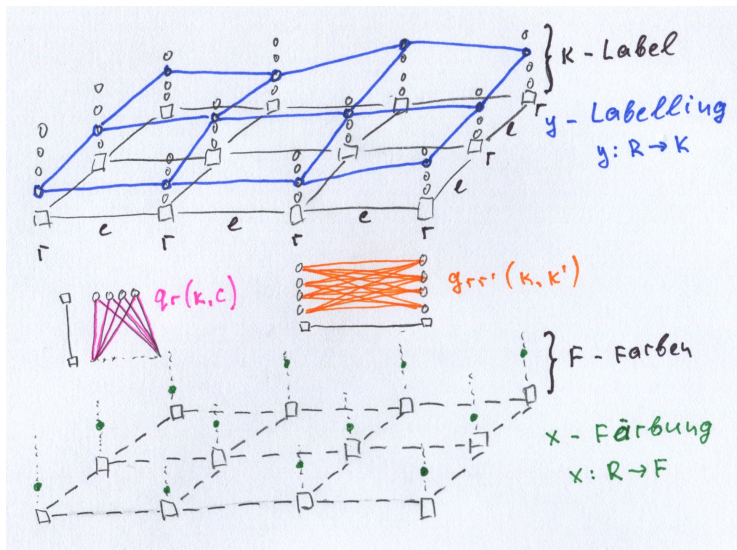 K - Label
r
y - Labelling
y: R → K
e
r
e
r
e
r
e
r
e
r
r
qr(K,C)
grr'(K,K')
F - Farben
x - Färbung
x: R → F